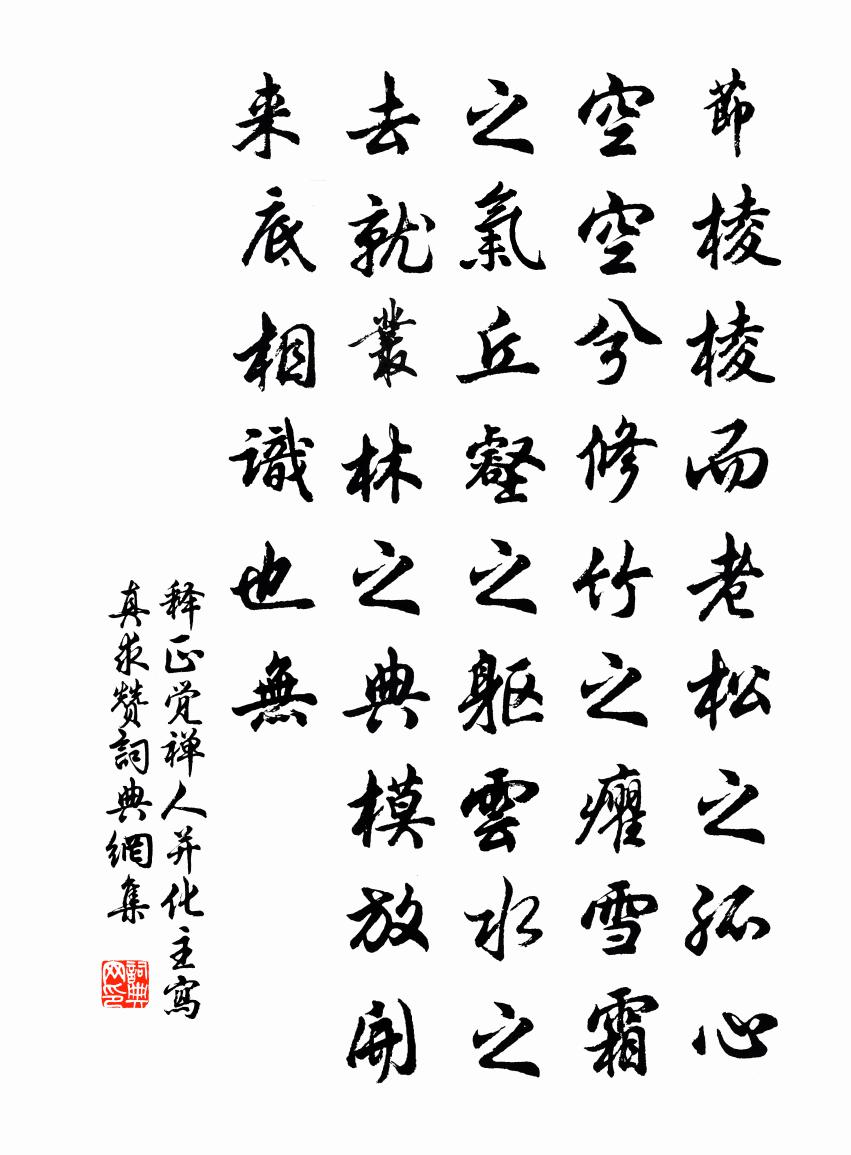 節棱棱而老松之孤心
空空兮修竹之癯雪霜
之氣丘壑之軀雲水之
去就叢林之典模放開
来底相識也無
释正觉禅人并化主寫
真求赞詞典網集
詞典网印